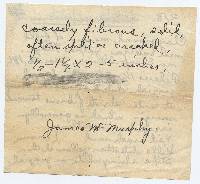 coarsely fibrous, solid,
often split or cracked,
½-1½ X 2-5 inches,
James W Murphy